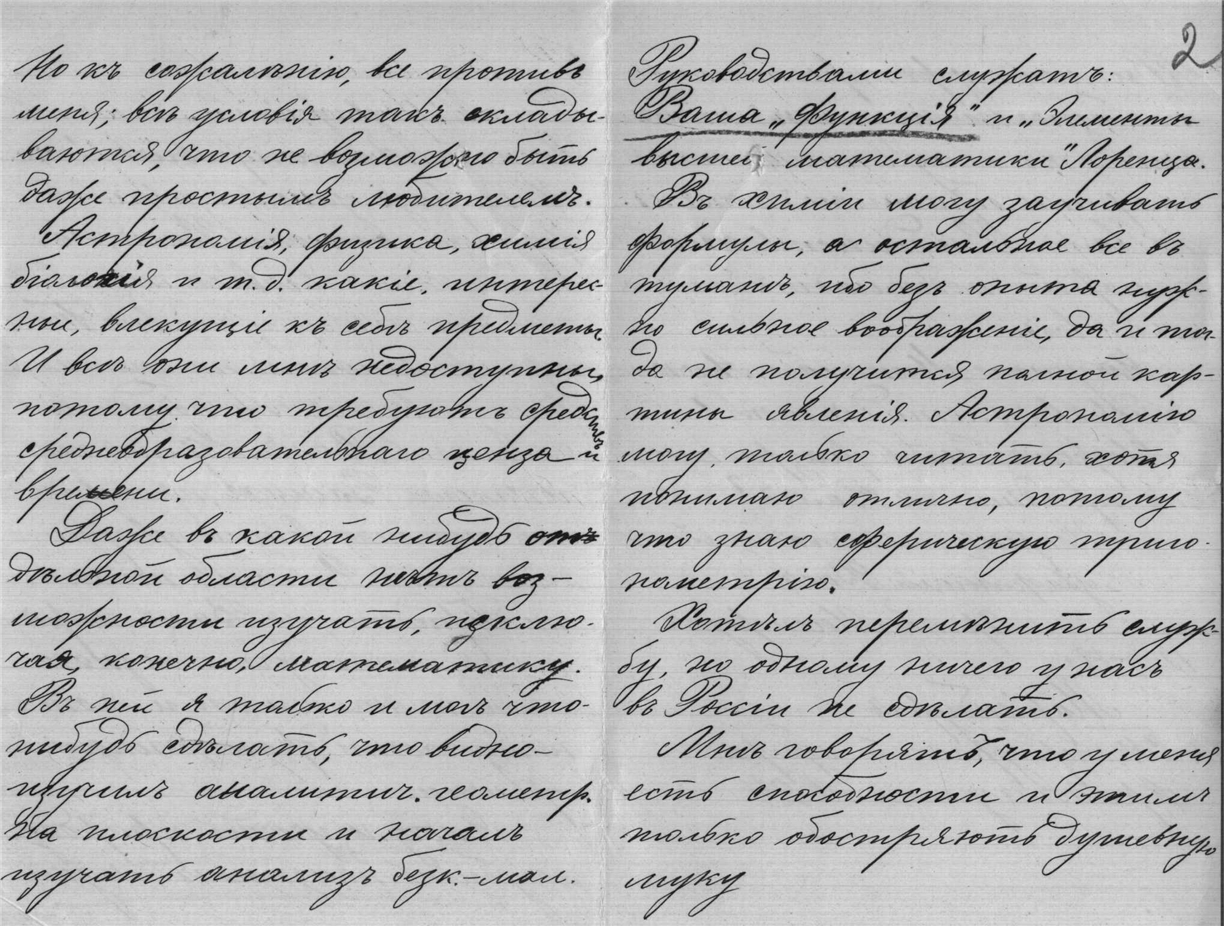 Но къ сожалѣнію, все противъ
меня; всѣ условія такъ склады-
ваются, что не возможно быть
даже простымъ любителемъ.
Астрономія, физика, химія
біологія и т.д. какіе, интерес-
ные, влекущіе къ себѣ предметы.
И всѣ они мнѣ недоступны,
потому что требуютъ средствъ
среднеобразовательнаго ценза и
времени.
Даже въ какой нибудь отъ
дѣльной области нѣтъ воз-
можности изучать, исклю-
чая, конечно, математику.
Въ ней я только и могъ что-
нибудь сдѣлать, что видно-
изучилъ аналитич. геометр.
на плоскости и началъ
изучать анализъ безк.-мал.
2
Руководствами служатъ:
Ваша „Функція" и „Элементы
высшей математики" Лоренца.
Въ химіи могу заучивать
формулы, а остальное все въ
туманѣ, ибо безъ опыта нуж-
но сильное воображеніе, да и тог-
да не получится полной кар-
тины явленія. Астрономію
могу только читать, хотя
понимаю отлично, потому
что знаю сферическую триго-
нометрію.
Хотѣлъ перемѣнить служ-
бу, но одному ничего у насъ
въ Россіи не сдѣлать.
Мнѣ говорятъ, что у меня
есть способности и этимъ
только обостряютъ душевную
муку